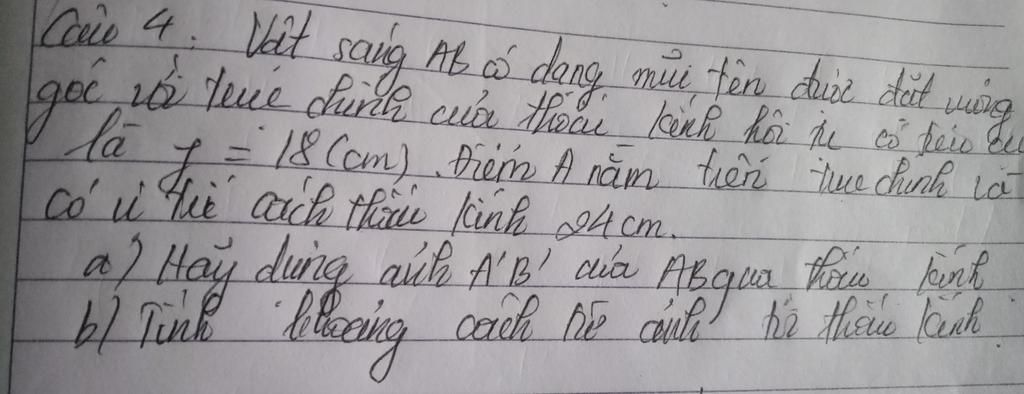 Câu 4: Vật sáng AB có dạng mũi tên được đặt vuông
góc với trục chính của thấu kính hội tụ có tiêu cự
là f = 18 (cm). Điểm A nằm trên trục chính và
có vị trí cách thấu kính 24 cm.
a) Hãy dựng ảnh A'B' của AB qua thấu kính
b) Tính khoảng cách từ ảnh tới thấu kính